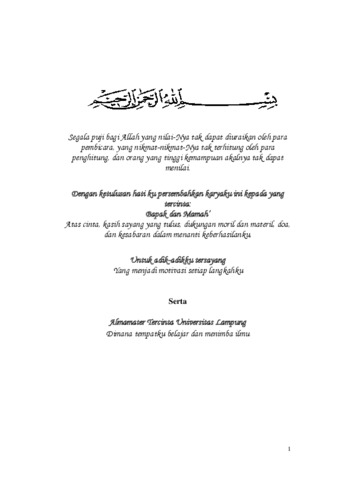 بِسْمِ اللهِ الرَّحْمٰنِ الرَّحِيْمِ
Segala puji bagi Allah yang nilai-Nya tak dapat diuraikan oleh para
pembicara, yang nikmat-nikmat-Nya tak terhitung oleh para
penghitung, dan orang yang tinggi kemampuan akalnya tak dapat
menilai.
Dengan ketulusan hati ku persembahkan karyaku ini kepada yang
tercinta:
Bapak dan Mamah'
Atas cinta, kasih sayang yang tulus, dukungan moril dan materil, doa,
dan kesabaran dalam menanti keberhasilanku.
Untuk adik-adikku tersayang
Yang menjadi motivasi setiap langkahku
Serta
Almamater Tercinta Universitas Lampung
Dimana tempatku belajar dan menimba ilmu
1